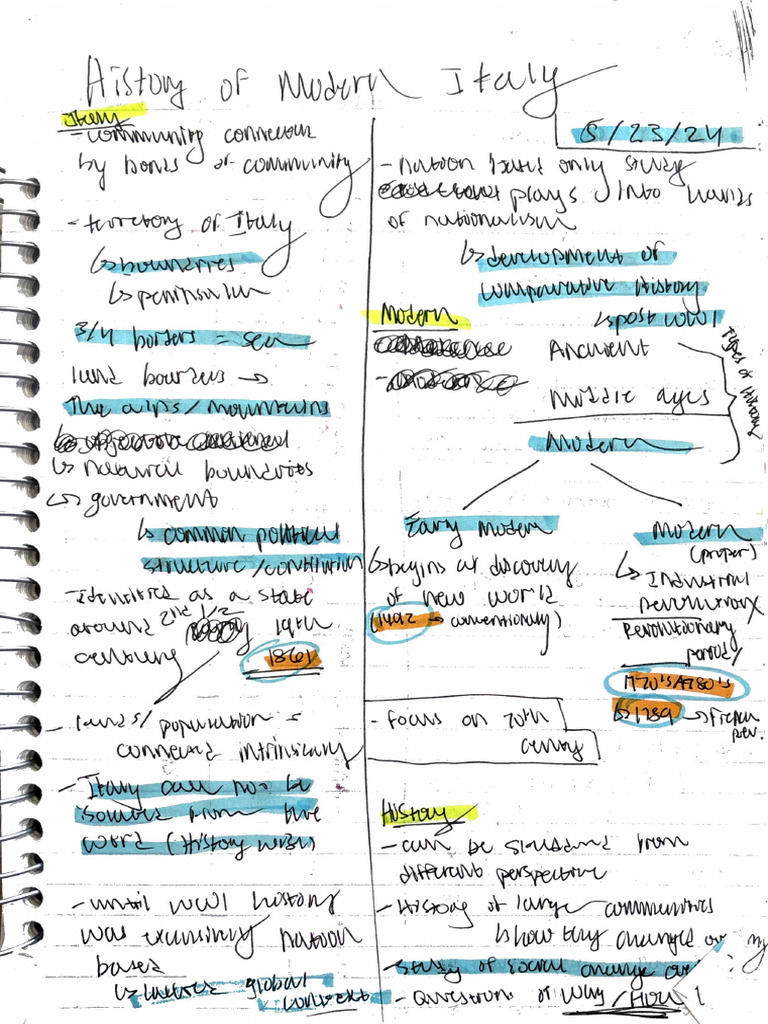 History of Modern Italy
5/23/24
Italy
- community connected
by bonds of community
- territory of Italy
↳ boundries
↳ peninsula
3/4 borders = sea
land bourders →
The alps/mountains
↳ natural boundries
↳ government
↳ common political
structure/constitution
- Identified as a state
around 2nd 1/2 19th
century 1861
- lands/population =
connected intrinsically
- Italy can not be
isolated from the
world (History wise)
- until WW1 history
was exclusively nation
based
↳ global
context
- nation based only study
plays into hands
of nationalism
↳ development of
comparative history
↳ post WW1
Modern
Ancient
Middle ages
Modern
Types of History
Early modern
↳ begins at discovery
of new world
(1492 → conventionally)
Modern
(proper)
↳ Industrial
revolution
Revolutionary
period/
1770's/1780's
↳ 1789 → French
rev.
- Focus on 20th
century
History
- can be studied from
different perspective
- History of large communities
↳ how they changed
- study of social change
- Questions of Why/How